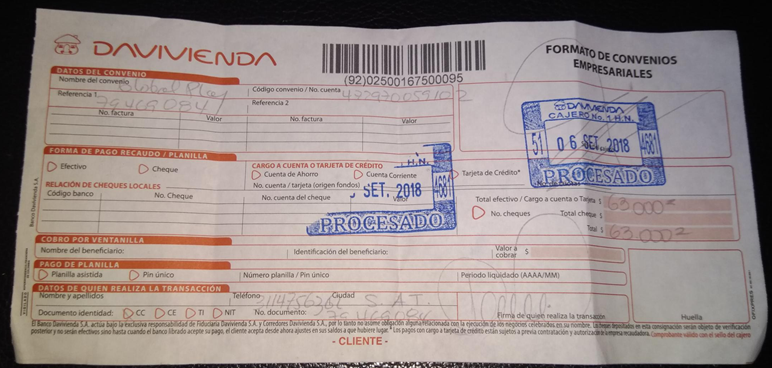 DAVIVIENDA
(92)02500167500095
FORMATO DE CONVENIOS
EMPRESARIALES
DATOS DEL CONVENIO
Nombre del convenio Global Play
Código convenio / No. cuenta
Referencia 1 79469084
Referencia 2
No. factura Valor No. factura Valor
DAVIVIENDA
CAJERO No. 1 H.N.
51 06 SET. 2018 4681
PROCESADO
FORMA DE PAGO RECAUDO / PLANILLA
Efectivo Cheque
CARGO A CUENTA O TARJETA DE CRÉDITO
Cuenta de Ahorro Cuenta Corriente Tarjeta de Crédito*
No. cuenta / tarjeta (origen fondos)
H.N.
SET. 2018 4681
PROCESADO
RELACIÓN DE CHEQUES LOCALES
Código banco No. Cheque No. cuenta del cheque Valor
Total efectivo / Cargo a cuenta o Tarjeta $ 63000
No. cheques Total cheque $
Total $ 63.000
COBRO POR VENTANILLA
Nombre del beneficiario: Identificación del beneficiario: Valor a cobrar $
PAGO DE PLANILLA
Planilla asistida Pin único Número planilla / Pin único Periodo liquidado (AAAA/MM)
DATOS DE QUIEN REALIZA LA TRANSACCIÓN
Nombre y apellidos Teléfono Ciudad
Documento identidad: CC CE TI NIT No. documento: 79469084
Firma de quien realiza la transacción Huella
El Banco Davivienda S.A. actúa bajo la exclusiva responsabilidad de Fiduciaria Davivienda S.A. y Corredores Davivienda S.A., por lo tanto no asume obligación alguna relacionada con la ejecución de los negocios celebrados en su nombre. Los cheques depositados en esta consignación serán objeto de verificación
posterior y no serán efectivos sino hasta cuando el banco librado acepte su pago, el cliente acepta desde ahora ajustes en sus saldos a que hubiere lugar. * Los pagos con cargo a tarjeta de crédito están sujetos a previa contratación y autorización de la empresa recaudadora. Comprobante válido con el sello del cajero
- CLIENTE -
Banco Davivienda S.A.